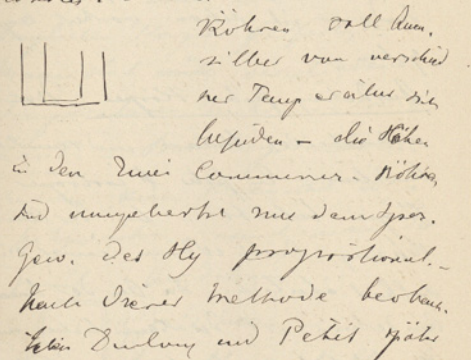 Röhren soll Queck-
silber von verschied
ner Temperatur sich
befinden – die Höhen
in den zwei Commener. Röhren
sind umgekehrt mit dem spez.
Gew. des Hg proportional. –
Nach dieser Methode beobach-
teten Dulong und Petit später